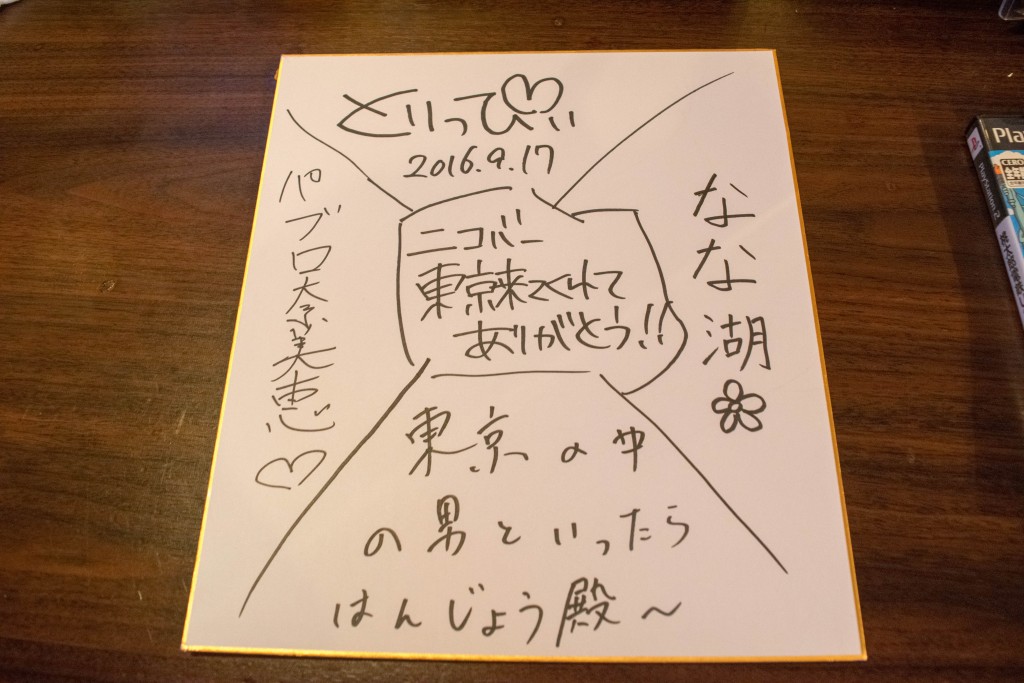 とりっぴぃ
2016.9.17
ニコバー
東京来てくれて
ありがとう!!
パブロ奈美恵♡
なな湖
東京の中
の男といったら
はんじょう殿~
PlayStation 2